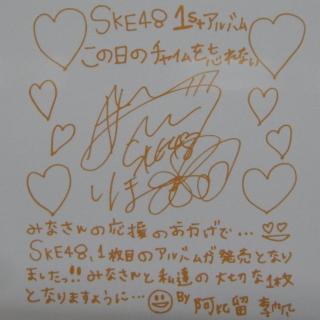 SKE48 1stアルバム
この日のチャイムを忘れない
SKE48
りほ
みなさんの応援のおかげで…
SKE48、1枚目のアルバムが発売となり
ましたっ!!みなさんと私達の大切な1枚
となりますように… BY 阿比留